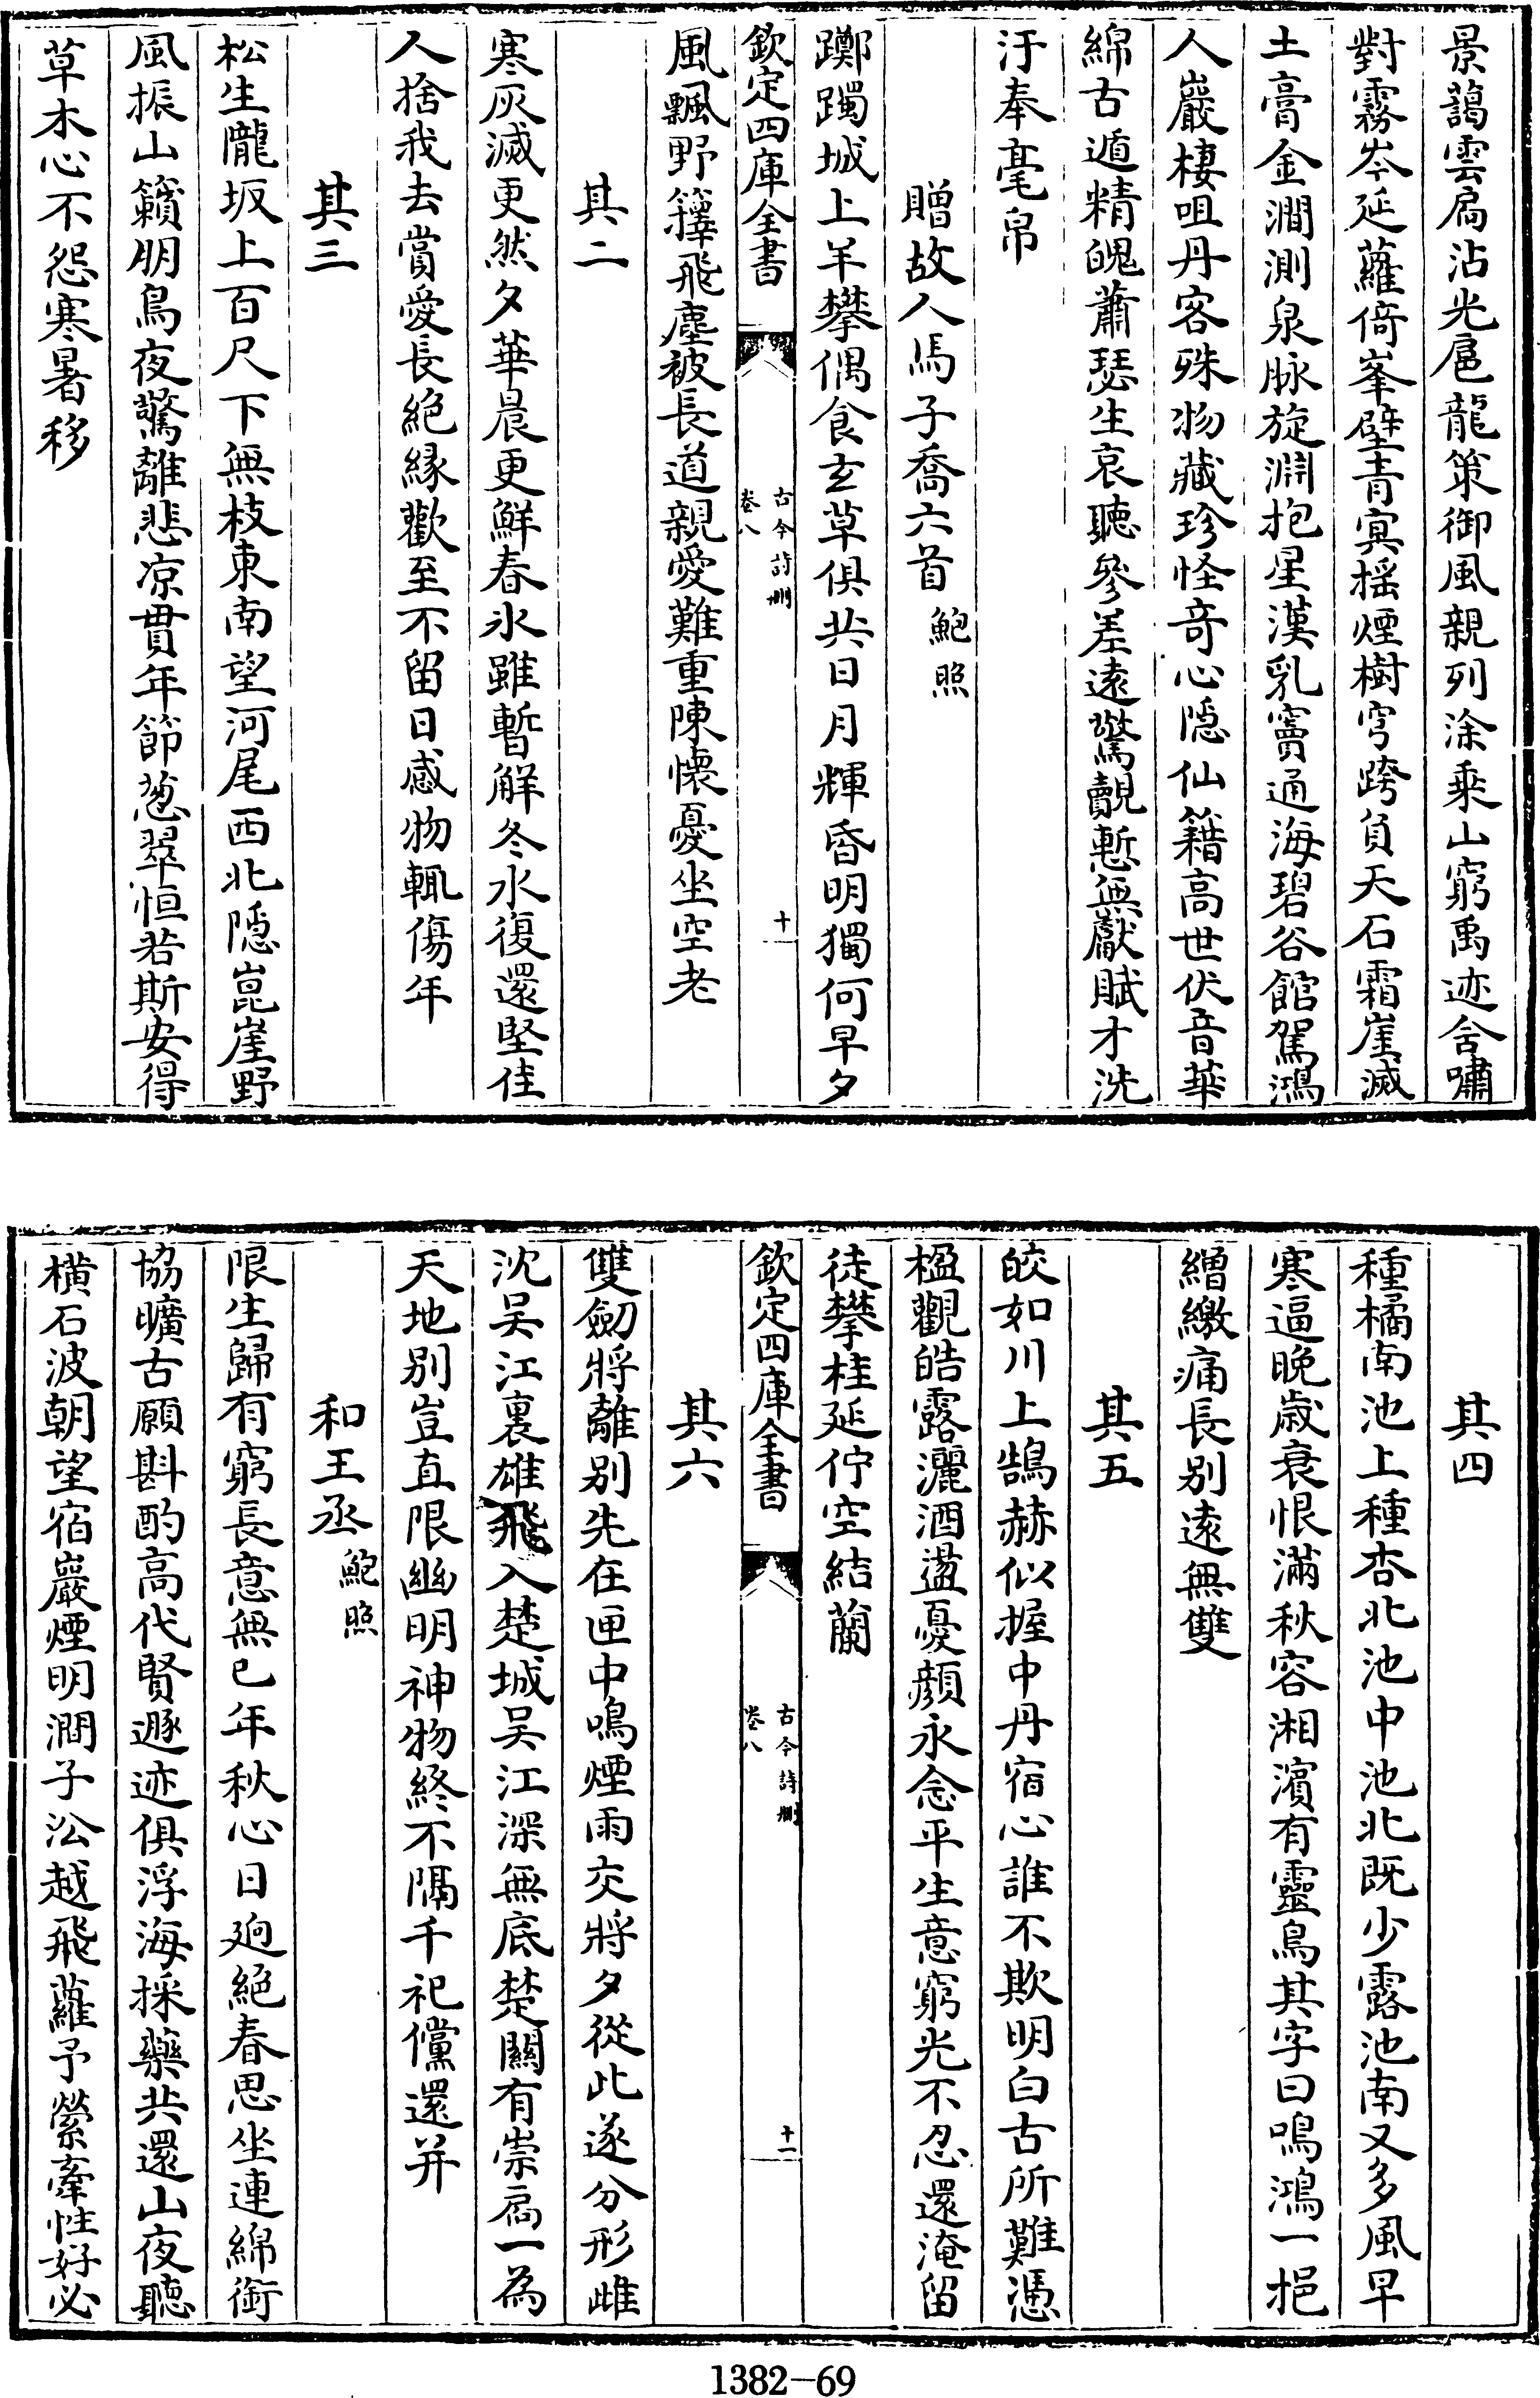 景藹雲扃沾光扈龍策御風親列涂乘山窮禹迹含嘯
對霧岑延蘿倚峯壁青冥揺煙樹穹跨負天石霜崖滅
土膏金澗測泉脉旋淵抱星漢乳竇通海碧谷館駕鴻
人巖棲咀丹客殊物藏珍怪竒心隠仙籍高世伏音華
綿古遁精魄蕭瑟生哀聽參差逺驚覿慙無獻賦才洗
汙奉毫帛
贈故人馬子喬六首 鮑照
躑躅城上羊攀偶食玄草俱共日月輝昏明獨何早夕
欽定四庫全書
古今詩刪
卷八
十
風飄野籜飛塵被長道親愛難重陳懷憂坐空老
其二
寒灰滅更然夕華晨更鮮春氷雖暫解冬水復還堅佳
人捨我去賞愛長絶縁歡至不留日感物輒傷年
其三
松生隴坂上百尺下無枝東南望河尾西北隠崑崖野
風振山籟朋鳥夜驚離悲凉貫年節葱翠恒若斯安得
草木心不怨寒暑移
其四
種橘南池上種杏北池中池北既少露池南又多風早
寒逼晩歳衰恨滿秋容湘濱有靈鳥其字曰鳴鴻一挹
繒繳痛長别逺無雙
其五
皎如川上鵠赫似握中丹宿心誰不欺明白古所難憑
楹觀皓露灑酒盪憂顔永念平生意窮光不忍還淹留
徒攀桂延佇空結蘭
欽定四庫全書
古今詩刪
卷八
十一
其六
雙劒將離别先在匣中鳴煙雨交將夕從此遂分形雌
沈吴江裏雄飛入楚城吴江深無底楚闗有崇扃一為
天地别豈直限幽明神物終不隔千祀儻還并
和王丞 鮑照
限生歸有窮長意無已年秋心日逈絶春思坐連綿銜
協曠古願斟酌高代賢遯迹俱浮海採藥共還山夜聽
横石波朝望宿巖煙明澗子㳂越飛蘿予縈牽性好必
1382—69